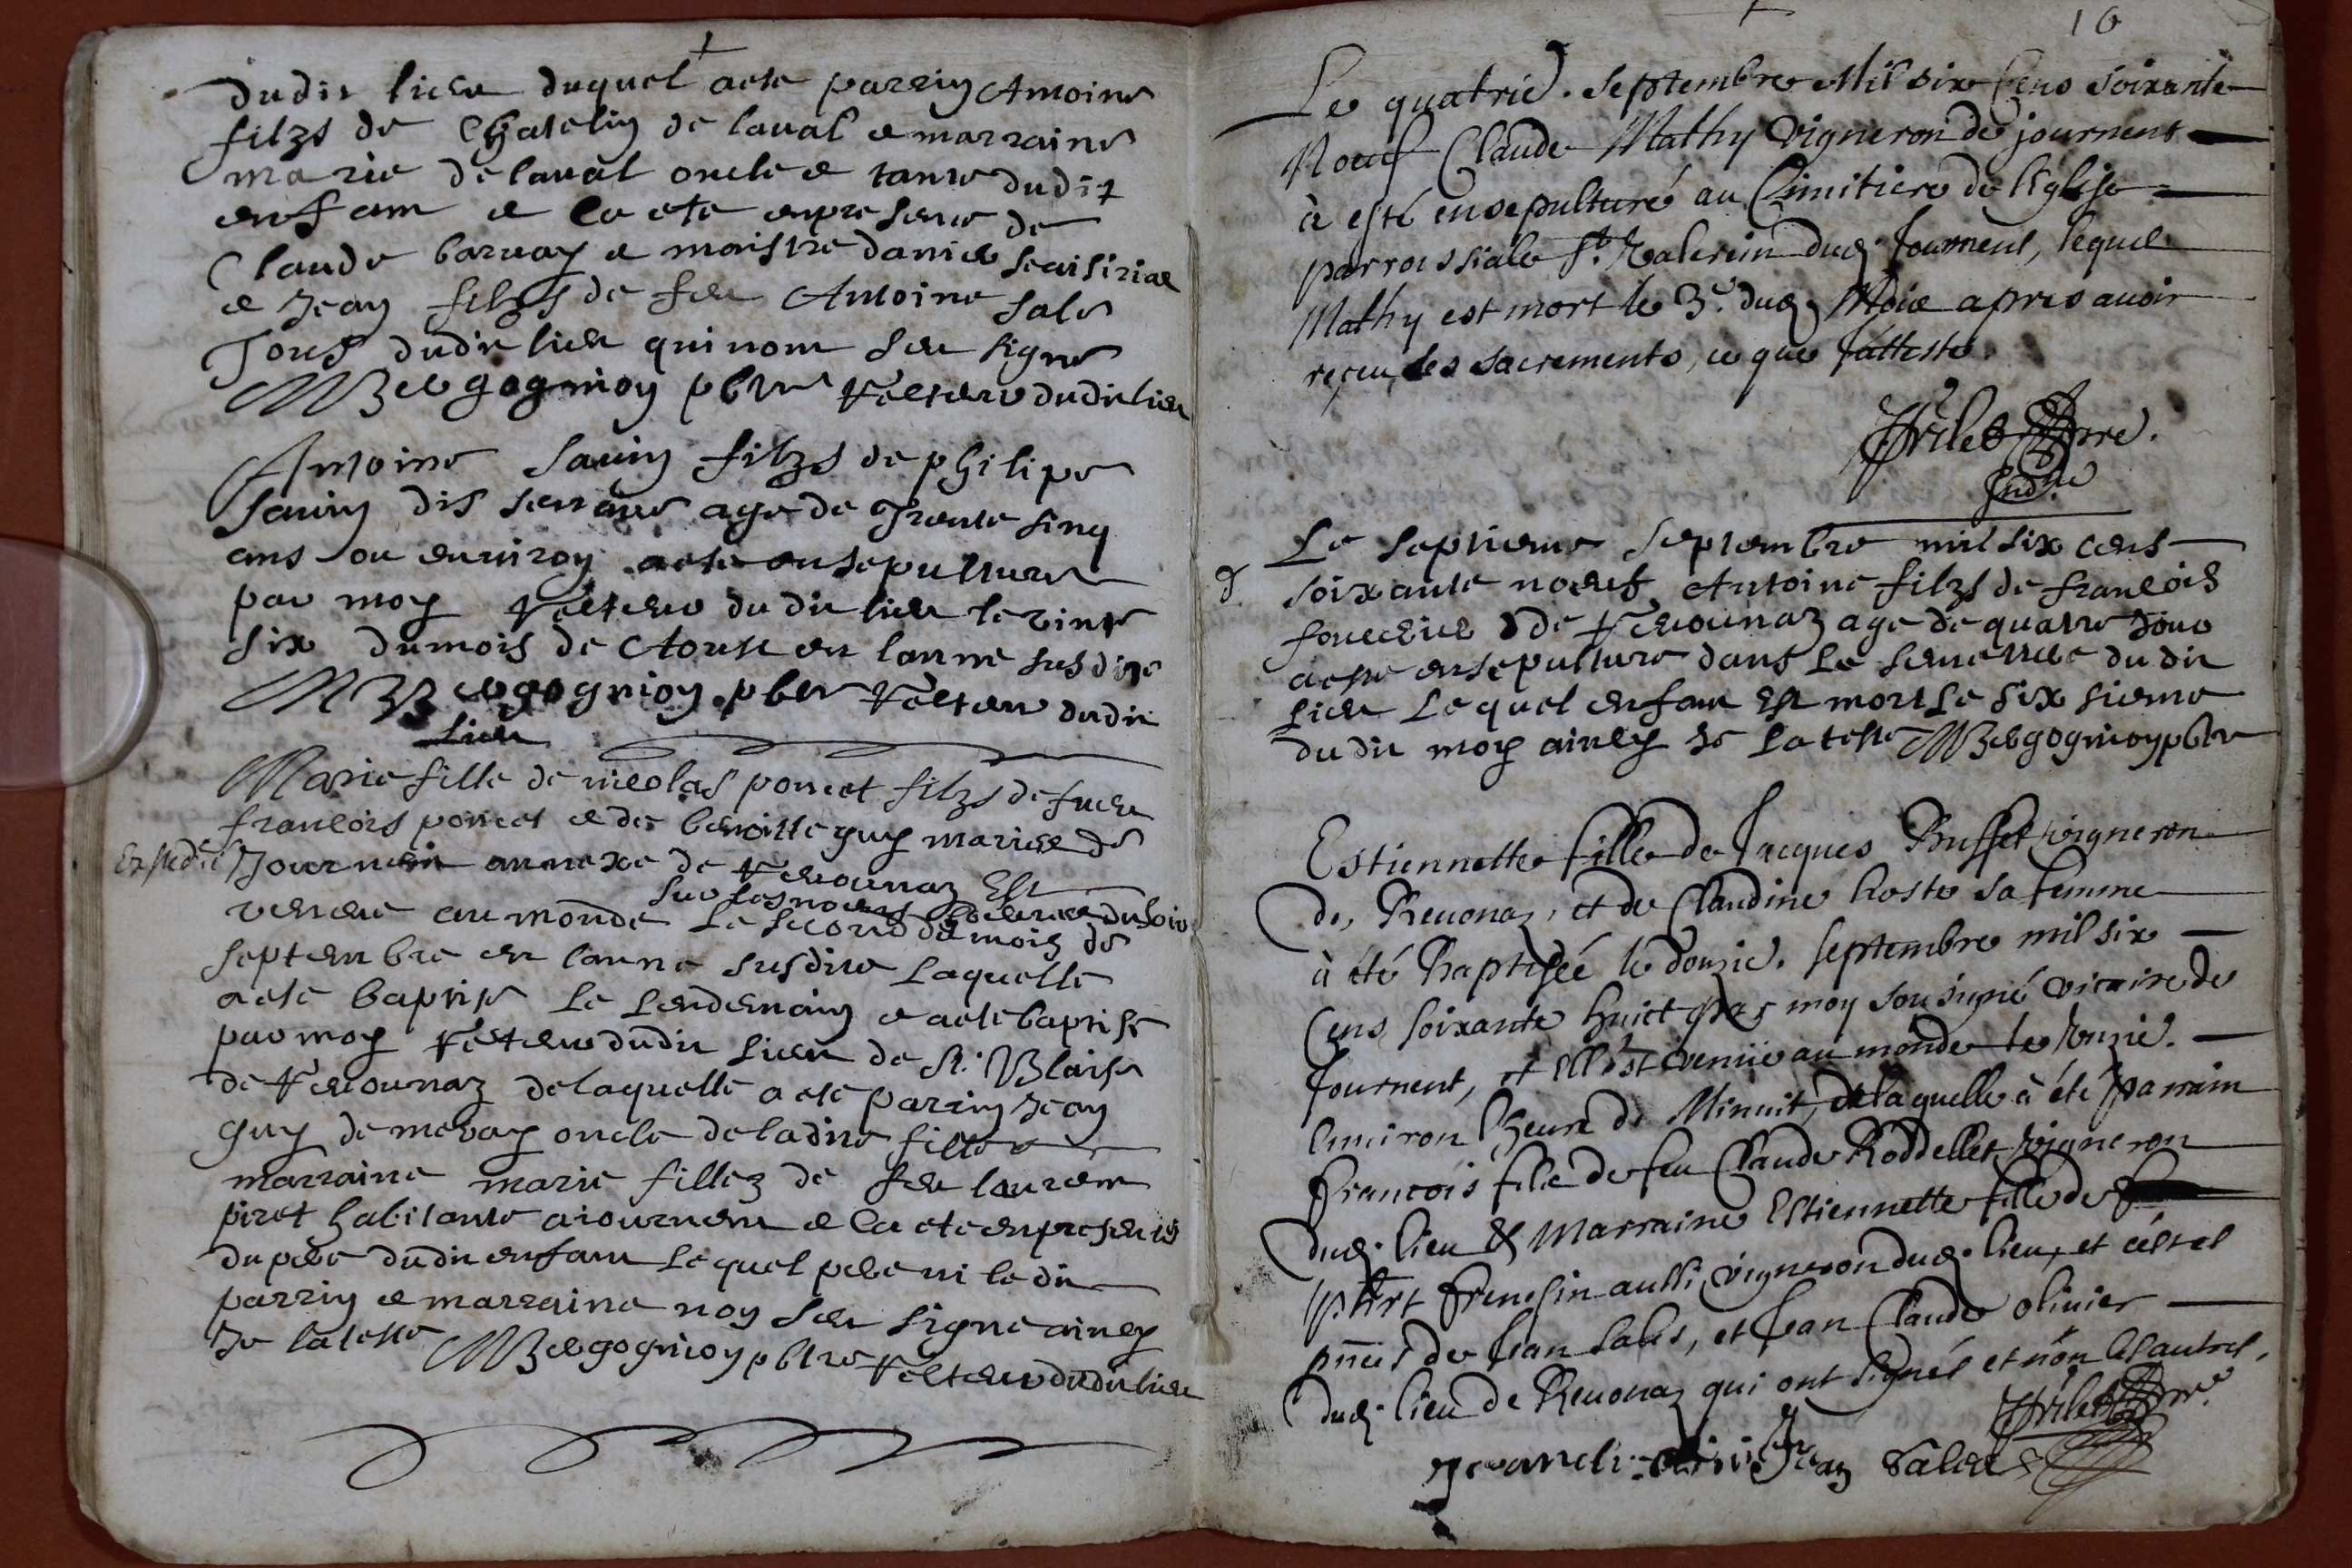 dudit lieu duquel a ete parrin Antoine
filzs de Chatelin de laval e marraine
marie de laval oncle e tante dudit
enfam e ce ete enpresence de
Claude barnay e maistre daniel
e Jean filzs de feu Antoine sale
Tous dudit lieu qui nom seu signe
pbre Recteur dudit lieu
Antoine Savin filzs de philipe
Savin dit age de Trente sinq
ans ou environ a este ensepulture
par moy Recteur du dit lieu le vint
six du mois de Aoust en lanne susdite
pbre Recteur dudit
lieu
Marie fille de nicolas poncet filzs de fueu
francois poncet e de benoitte guy maries de
Expedie Journein annexe de Revounaz Est
sur les noeuf heures du soir
venue au monde Le second du mois de
septembre en lanne susdite Laquelle
a ete baptise Le Lendemain e a ete baptise
par moy Recteur dudit Lieu de St. Blaise
de Revounaz de laquelle a ete parrin Jean
guy de oncle de ladite fille e
marraine marie fillez de feu laurem
piret habitante a journem e ce ete enpresence
du pere dudit enfam Lequel pere ni le dit
parrin e marraine non seu signe ainsy
Je lateste pbtre Recteur dudit lieu
16
Le quatrie. Septembre Mil six Cens Soixante
Noeuf Claude Mathy vigneron de journent
à esté ensepulturé au Cimitiere de l'Eglise
parroissiale St. Valerein dud. Journent, lequel
Mathy est mort le 3e. dud. Mois apres avoir
reçeu les sacrements, ce que J'atteste.
Le septieme septembre mil six cens
soixante noeuf Antoine filzs de francois
de Revounaz age de quatre jour
a este ensepulture dans Le semettiere du dit
Lieu Lequel enfam Est mort Le six sieme
du dit moy ainsy Je Lateste pbre
Estiennette fille de Jacques Buffet vigneron
de Revonaz, et de Claudine hoste sa femme
à été Baptisée le douzie. Septembre mil six
Cens soixante huict par moy sousigné vicaire de
Journent, et Ell'est venüe au monde le
Environ l'heure de Minuit, de laquelle à été parrain
François fils de feu Claude Roddellet vigneron
dud. lieu & Marraine Estiennette fille de
aussi vigneron dud. lieu, et cest es
pnces de Jean Sales, et Jean Claude olivier
dud. lieu de Revonaz qui ont signés et non les autres.
Jean Sales